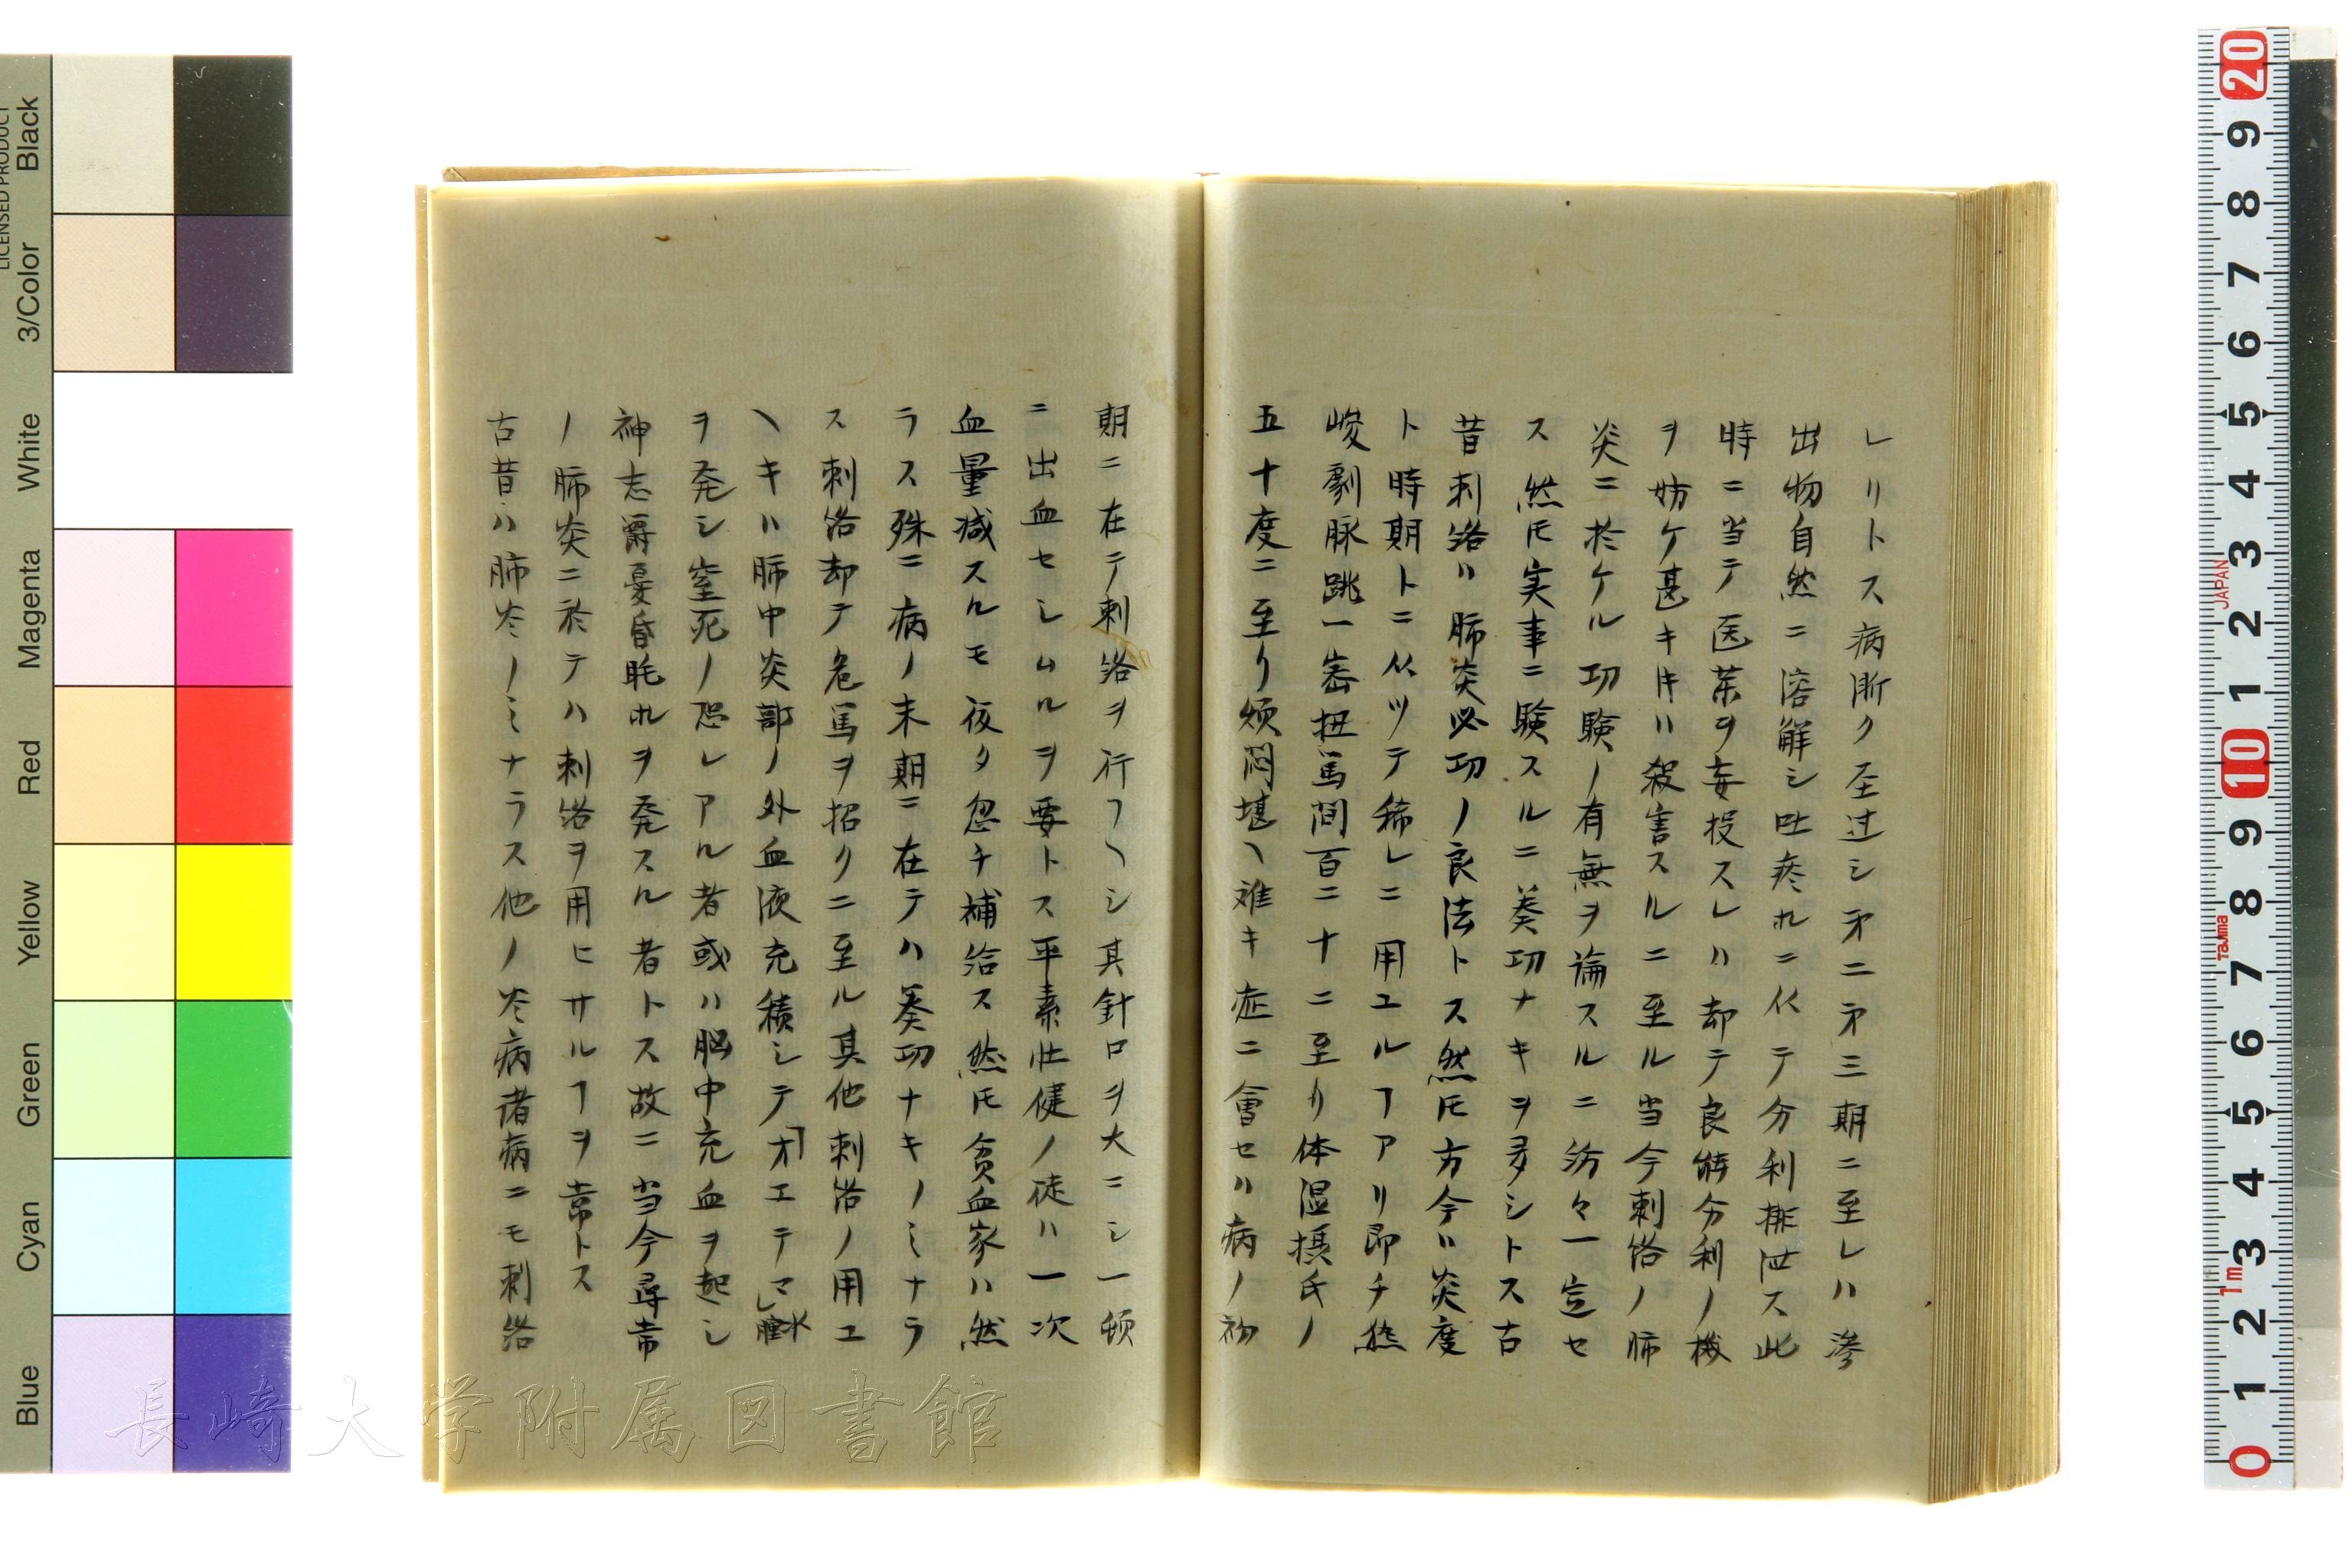 レリトス病漸ク圣过シ㐧二㐧三期ニ至レハ滲
出物自然ニ溶解シ吐痰ルニ从テ分利排泄ス此
時ニ当テ医薬ヲ妄投スレハ却テ良能分利ノ機
ヲ妨ケ甚キ𪜈ハ殺害スルニ至ル当今刺絡ノ肺
炎ニ於ケル功験ノ有無ヲ論スルニ紛々一定セ
ス然𪜈実事ニ験スルニ葵功ナキヲ多シトス古
昔刺絡ハ肺炎必功ノ良法トス然𪜈方今ハ炎度
ト時期トニ从ツテ稀レニ用ユルヿアリ即チ熱
峻劇脉跳一密扭馬間百二十ニ至り体温摂氏ノ
五十度ニ至り煩悶堪ヘ難キ症ニ會セハ病ノ初
期ニ在テ刺絡ヲ行フヘシ其針口ヲ大ニシ一頓
ニ出血セシムルヲ要トス平素壮健ノ徒ハ一次
血量减スルモ夜タ忽チ補給ス然𪜈貧血家ハ然
ラス殊ニ病ノ末期ニ在テハ葵功ナキノミナラ
ス刺絡却テ危篤ヲ招クニ至ル其他刺絡ノ用ユ
ヘキハ肺中炎部ノ外血液充積シテ「オエテマ」水腫
ヲ発シ窒死ノ恐レアル者或ハ脳中充血ヲ起シ
神志欝憂昏眊ホヲ発スル者トス故ニ当今尋常
ノ肺炎ニ於テハ刺絡ヲ用ヒサルヿヲ常トス
古昔ハ肺炎ノミナラス他ノ炎病諸病ニモ刺絡
長崎大学附属図書館
LICENSED PRODUCT
Black
3/Color
White
Magenta
Red
Yellow
Green
Cyan
Blue
20 9 8 7 6 5 4 3 2 1 10 9 8 7 6 5 4 3 2 1 0
JAPAN
Tajima
1m